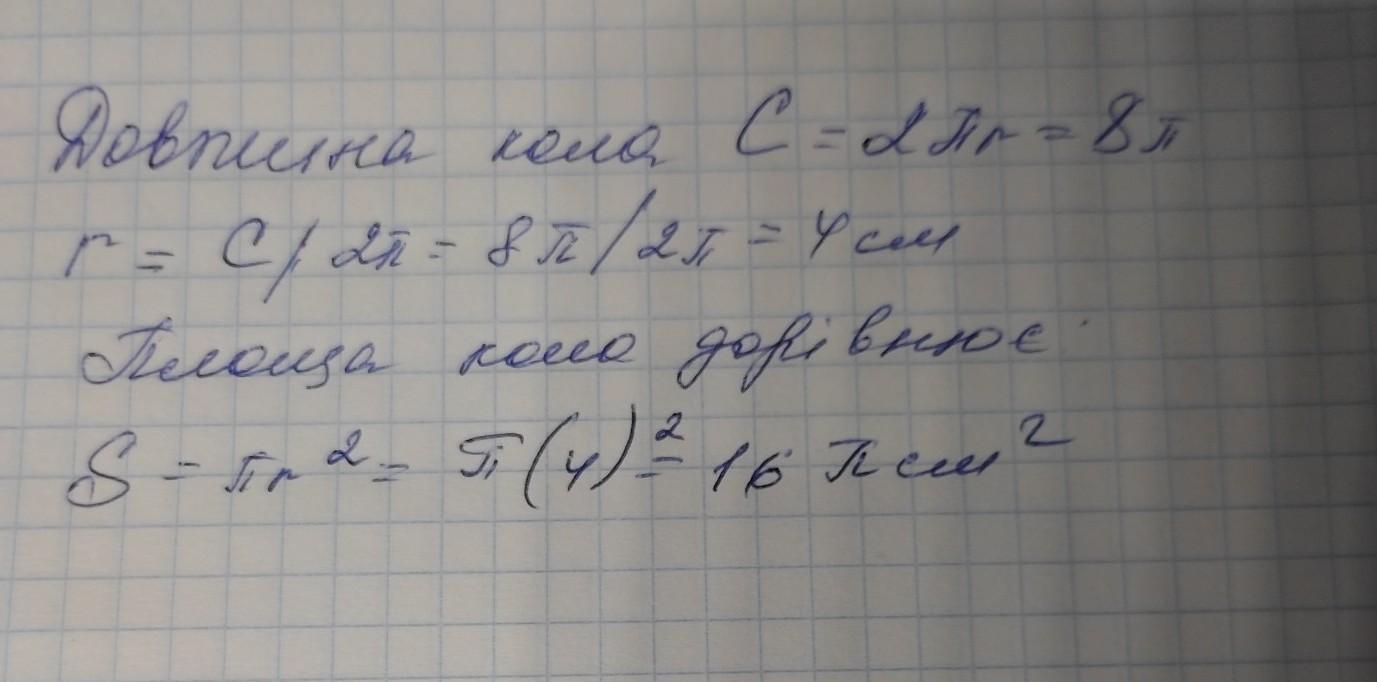 Довжина кола C = 2πr = 8π
r = C/2π = 8π/2π = 4см
Площа кола дорівнює
S = πr² = π(4)² = 16 π см²